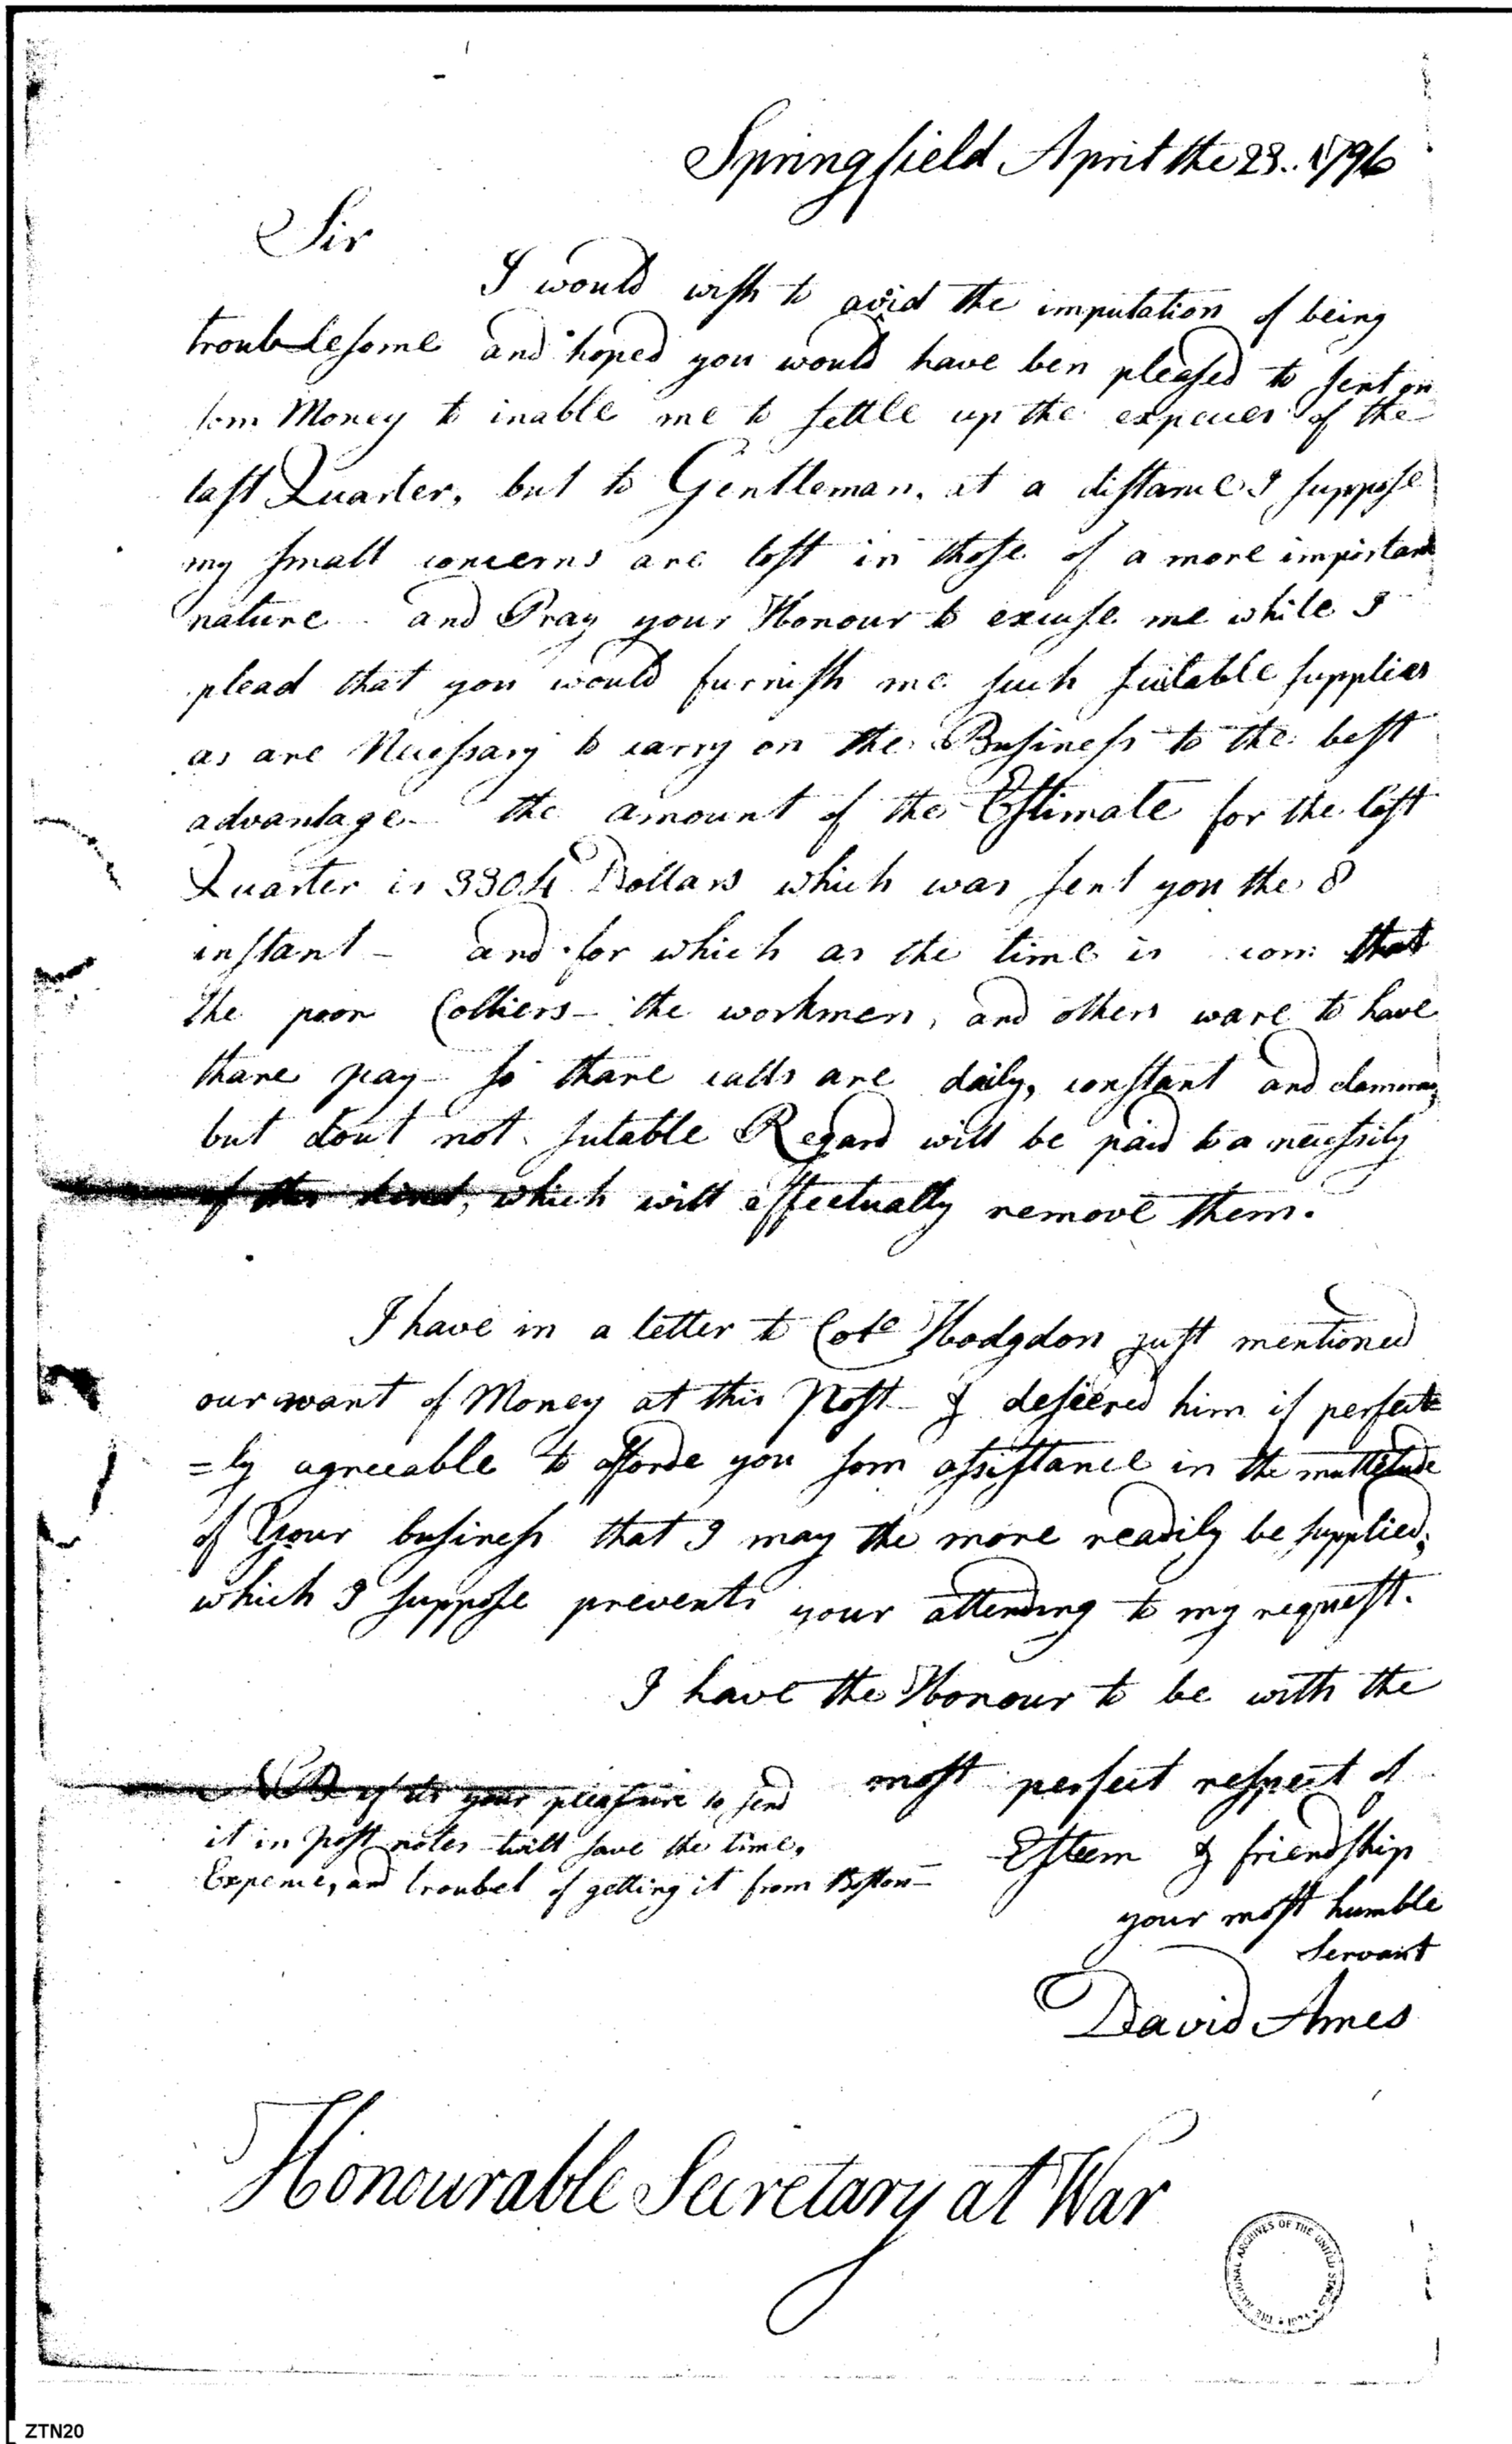 Springfield April the 23.. 1796
Sir
I would wish to avoid the imputation of being
troublesome and hoped you would have ben pleased to sent on
som Money to inable me to settle up the expences of the
last Quarter, but to Gentleman, at a distance I suppose
my small concerns are lost in those of a more important
nature and Pray your Honour to excuse me while I
plead that you would furnish me such suitable supplies
as are Necessary to carry on the Business to the best
advantage - the amount of the Estimate for the last
Quarter is 3304 Dollars which was sent you the 8
instant - and for which as the time is com that
the poor Colliers - the workmen, and others ware to have
thare pay - so thare calls are daily, constant and clamorous
but dout not sutable Regard will be paid to a necessity
of this kind, which will effectually remove them.
I have in a letter to Cole Hodgdon just mentioned
our want of Money at this Post - & desiered him if perfect
=ly agreeable to afforde you som assistance in the multitude
of Your business that I may the more readily be supplied,
which I suppose prevents your attending to my request.
I have the Honour to be with the
most perfect respect of
Esteem & friendship
your most humble
Servant
David Ames
NB if its your pleasure to send
it in post notes twill save the time,
Expence, and troubel of getting it from Boston -
Honourable Secretary at War
THE NATIONAL ARCHIVES OF THE UNITED STATES
ZTN20